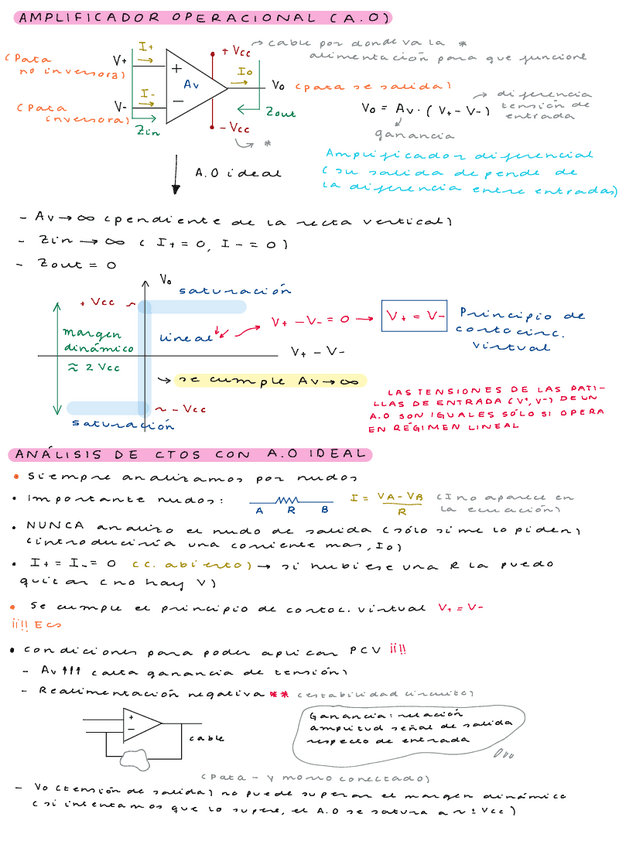 AMPLIFICADOR OPERACIONAL (A.O)
(Pata no inversora)
V+
I+
+ Vcc
cable por donde va la *
alimentación para que funcione
+
Av
Io
Vo (pata se salida)
I-
(Pata inversora)
V-
-
Zin
Zout
- Vcc
*
Vo = Av · (V+ - V-)
diferencia tensión de entrada
ganancia
Amplificador diferencial
(su salida depende de
la diferencia entre entradas)
A.O ideal
- Av → ∞ (pendiente de la recta vertical)
- Zin → ∞ ( I+ = 0, I- = 0 )
- Zout = 0
Vo
saturación
+ Vcc ~
margen dinámico
≈ 2 Vcc
lineal
V+ - V- = 0 → V+ = V-
Principio de cortocirc. virtual
V+ - V-
→ se cumple Av → ∞
~ - Vcc
saturación
LAS TENSIONES DE LAS PATI-
LLAS DE ENTRADA (V+, V-) DE UN
A.O SON IGUALES SÓLO SI OPERA
EN RÉGIMEN LINEAL
ANÁLISIS DE CTOS CON A.O IDEAL
• Siempre analizamos por nudos
• Importante nudos:
A R B
I = VA - VB / R
(I no aparece en
la ecuación)
• NUNCA analizo el nudo de salida (sólo si me lo piden)
(introduciría una corriente mas, Io)
• I+ = I- = 0 (c. abierto) → si hubiese una R la puedo
quitar (no hay V)
• Se cumple el principio de cortoc. virtual V+ = V-
¡¡!! Ecs
• condiciones para poder aplicar PCV ¡¡!!
- Av ↑↑↑ (alta ganancia de tensión)
- Realimentación negativa ** (estabilidad circuito)
+
-
cable
Ganancia: relación
amplitud señal de salida
respecto de entrada
(Pata - y morro conectado)
- Vo (tensión de salida) no puede superar el margen dinámico
(si intentamos que lo supere, el A.O se satura a ~ ± Vcc)